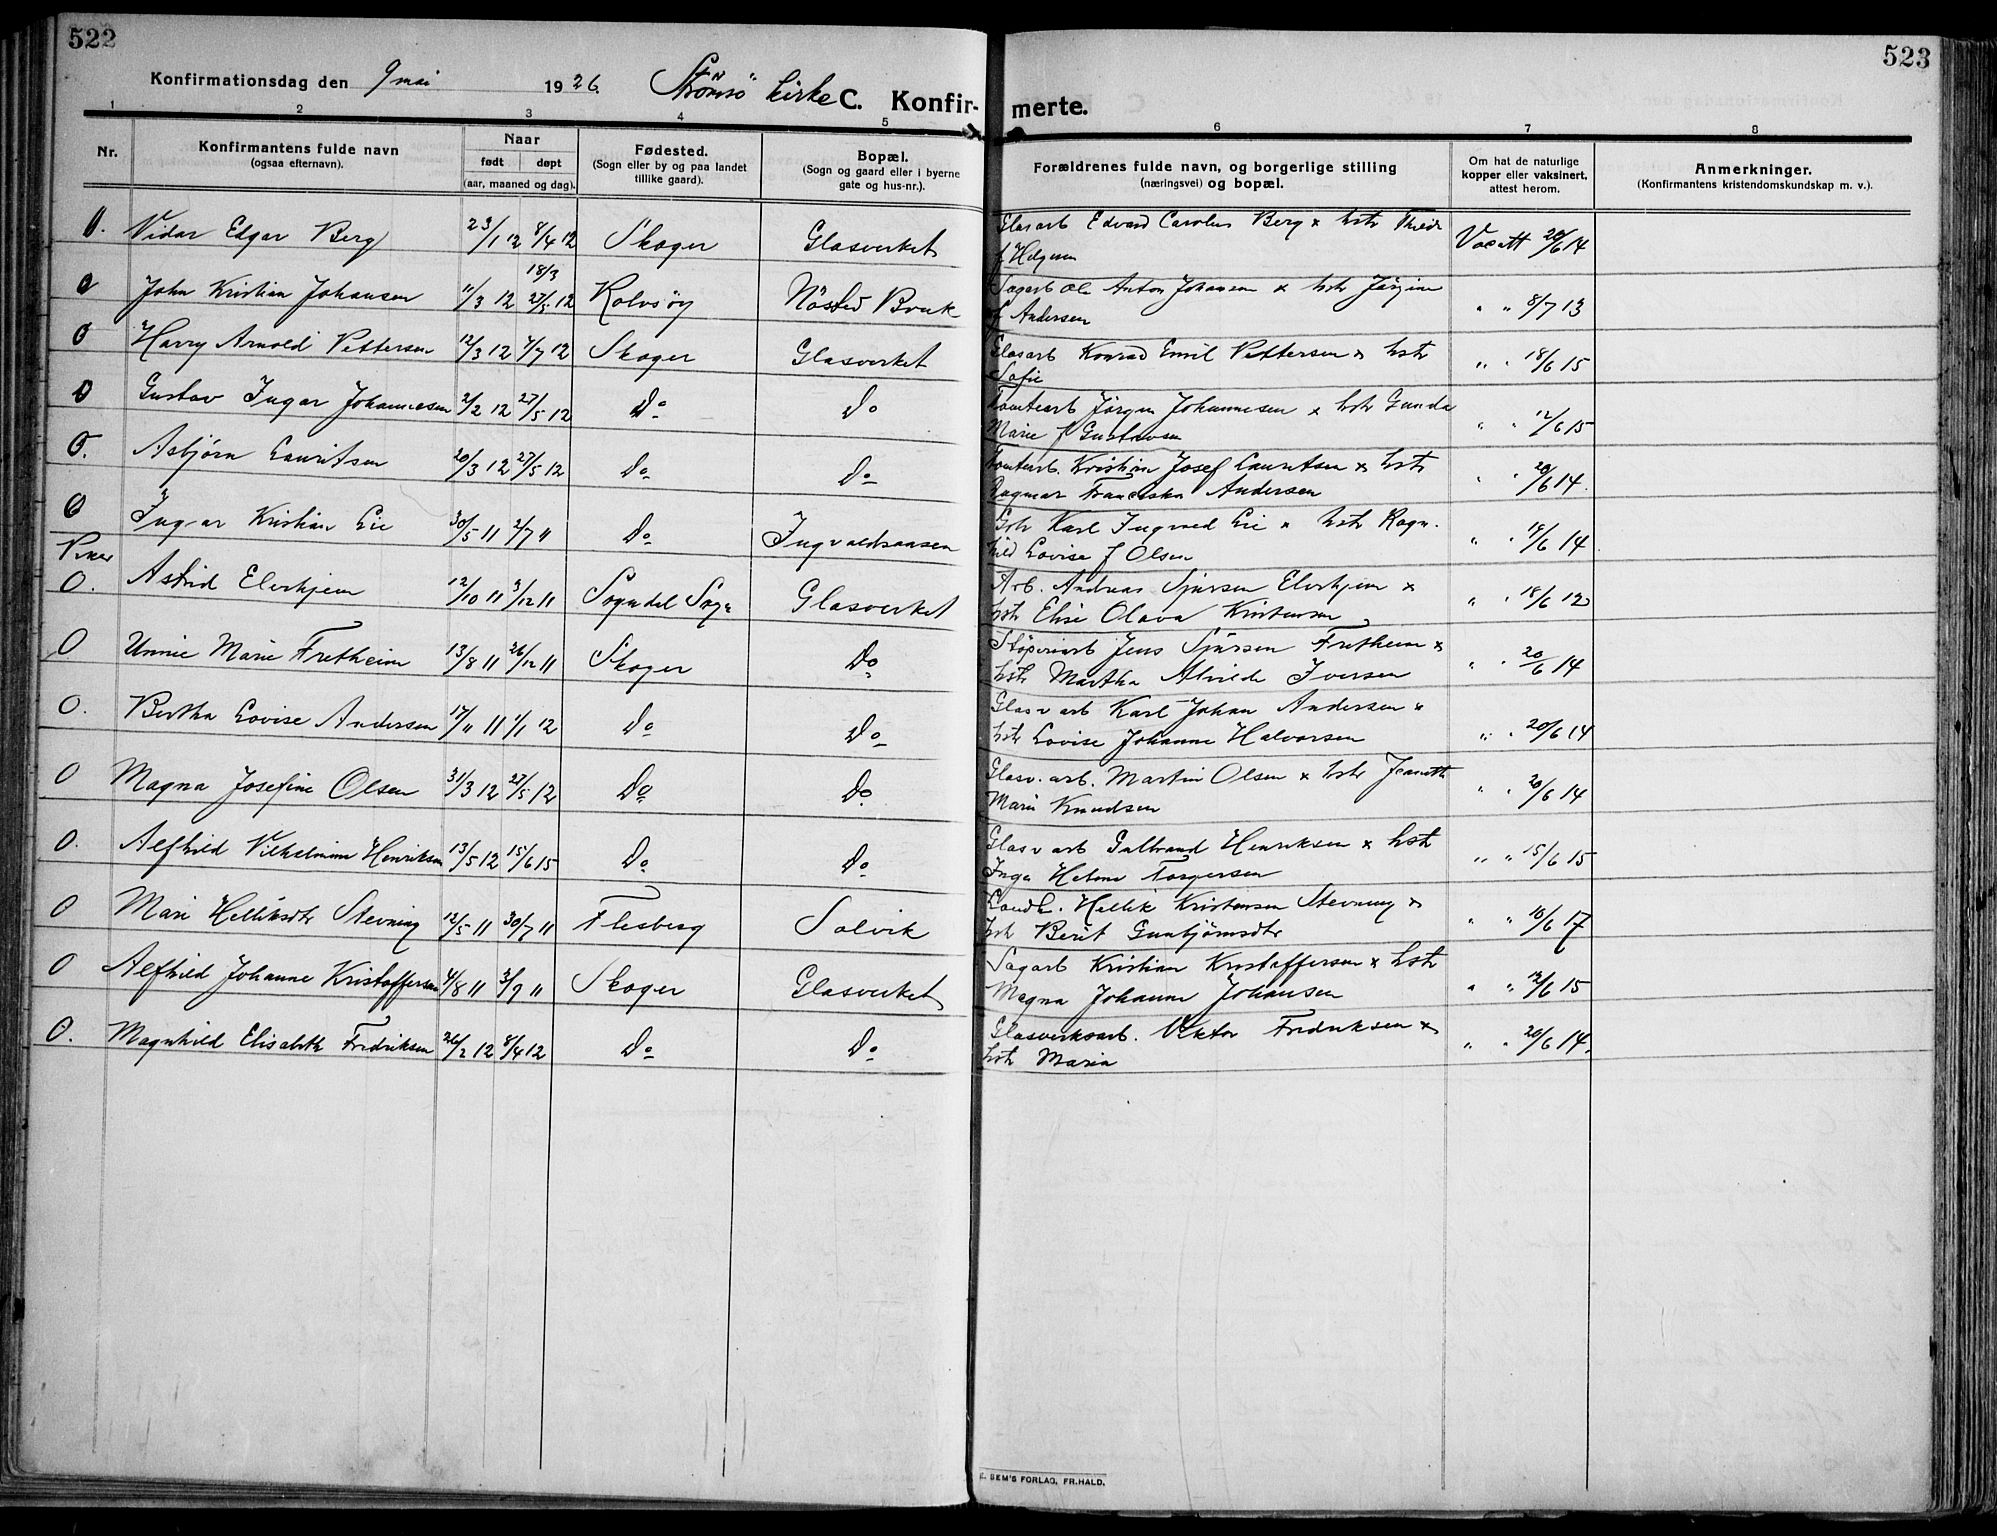 522
523
Konfirmationsdag den 9 mai 1926. Strömsö kirke C. Konfir- merte.
1 2 3 4 5 6 7 8
Nr. Konfirmantens fulde navn (ogsaa efternavn).
Naar født døpt (aar, maaned og dag).
Fødested. (Sogn eller by og paa landet tillike gaard).
Bopæl. (Sogn og gaard eller i byerne gate og hus-nr.).
Forældrenes fulde navn, og borgerlige stilling (næringsvei) og bopæl.
Om hat de naturlige kopper eller vaksinert, attest herom.
Anmerkninger. (Konfirmantens kristendomskundskap m. v.).
Vidar Edgar Berg 23/1 12 8/4 12 Skoger Glasverket Glasarb Edvard Carolus Berg x hstr
f Helgesen Vacatt 20/6 14
0 John Kristian Johansen 11/3 12 18/3 27/5 12 Rolvsöy Nösted Bruk Sagarb Ole Anton Johansen x hstr Jörgine
f Andersen " " 8/7 13
0 Harry Arnold Pettersen 12/3 12 7/7 12 Skoger Glasverket Glasarb Konrad Emil Pettersen x hstr
Sofie " " 18/6 15
0 Gustav Ingar Johannesen 2/2 12 27/5 12 Do Do Tomtearb Jörgen Johannesen x hstr Gunda
Marie f Gustavsen " " 12/6 15
0. Asbjørn Lauritsen 20/3 12 27/5 12 Do Do Tomtearb. Kristian Josef Lauritsen x hstr
Dagmar Franciska Andersen " 20/6 14.
0 Ingvar Kristian Lie 30/5 11 2/7 11 Do Ingvaldsaasen Karl Ingvard Lie x hstr Ragn-
hild Lovise f Olsen " " 18/6 14
Piker
0. Astrid Elerhjem 12/10 11 3/12 11 Sogndal Sogn Glasverket Arb. Andreas Sjursen Elerhjem x
hstr Elise Olava Kristensen " " 18/6 12
0. Unnie Marie Fretheim 13/8 11 26/12 11 Skoger Do Støperiarb Jens Sjursen Fretheim x
hstr Martha Alvilde Iversen " " 20/6 14
0. Bertha Lovise Andersen 17/11 11 1/1 12 Do Do Glasv arb Karl Johan Andersen x
hstr Lovise Johanne Halvorsen " " 20/6 14
0 Magna Josefine Olsen 31/3 12 27/5 12 Do Do Glasv. arb. Martin Olsen x hstr Jeanette
Marie Knudsen " " 20/6 14
0. Alfhild Vilhelmine Henriksen 13/5 12 15/6 15 Do Do Glasv arb Gulbrand Henriksen x hstr
Inga Helene Torgersen " " 15/6 15
0 Mari Helliksdtr Stevning 12/5 11 30/7 11 Flesberg Solvik Landh. Hellik Kristensen Stevning x
hstr Berit Gunbjørnsdtr " " 18/6 17
0 Alfhild Johanne Kristoffersen 4/8 11 3/9 11 Skoger Glasverket Sagarb Kristian Kristoffersen x hstr
Magna Johanne Johansen " " 12/6 15
0. Magnhild Elisabeth Fredriksen 26/2 12 8/4 12 Do Do Glasverksarb. Viktor Fredriksen x
hstr Maria " " 20/6 14.
BEM'S FORLAG, FR. HALD.